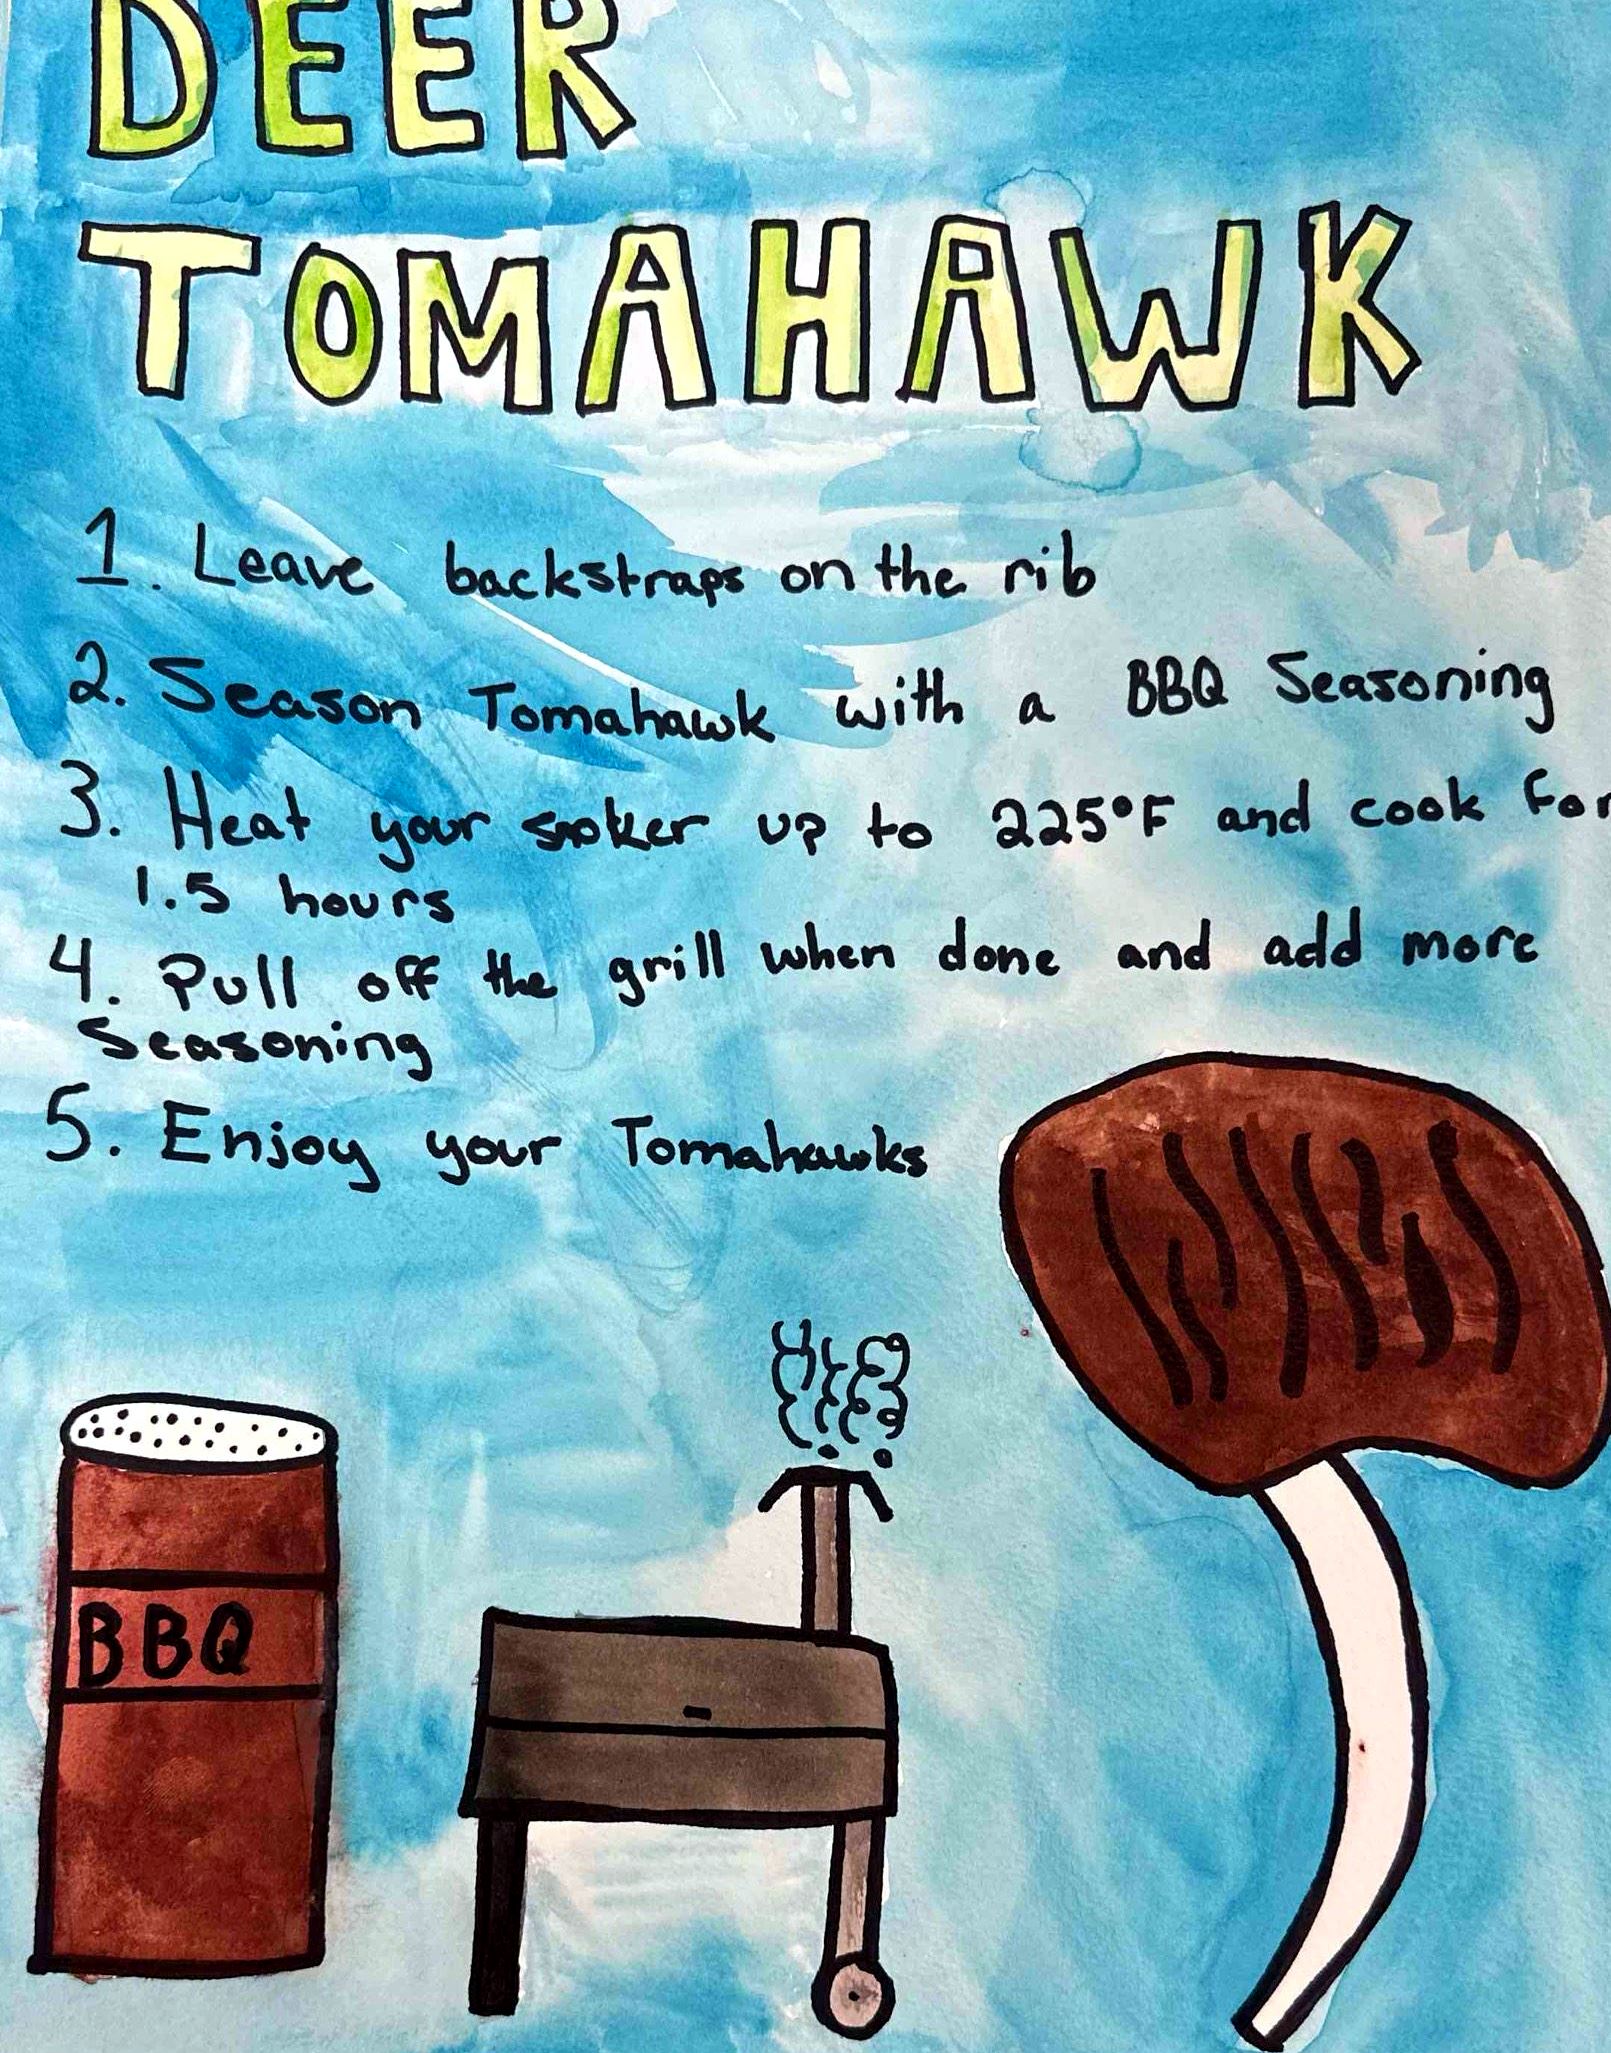 DEER
TOMAHAWK
1. Leave backstraps on the rib
2. Season Tomahawk with a BBQ Seasoning
3. Heat your smoker up to 225°F and cook for
1.5 hours
4. Pull off the grill when done and add more
Seasoning
5. Enjoy your Tomahawks
BBQ